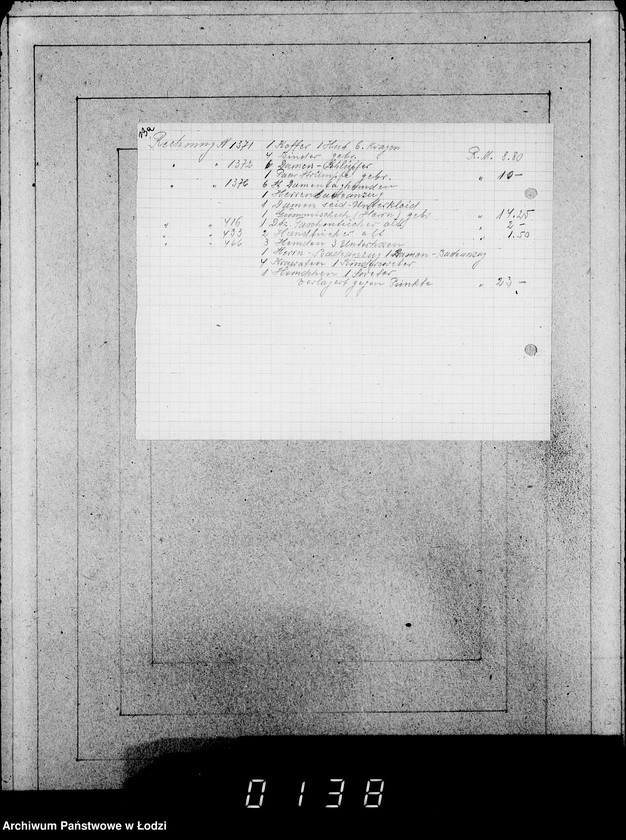 Rechnung N 1371 1 Koffer 1 Hut 6 Kragen
4 Binder gebr. R.M. 8.80
" " 1372 6 Damen-Schlüpfer
1 Paar Strümpfe gebr. " 10-
" " 1376 6 St Damen
1 Herren
1 Damen seid-Unterkleid
1 (Herrn) gebr. " 14.25
" " 416 1 Dtz Taschentücher alt " 2-
" " 433 2 Handtücher alt " 1.50
" " 466 3 Hemden 3 Unterhosen
1 Herrn-Badeanzug 1 Damen-Badeanzug
4 Krawaten 1
1 Hemdchen 1 Sweter
gegen Punkte " 23-
0138
Archiwum Państwowe w Łodzi